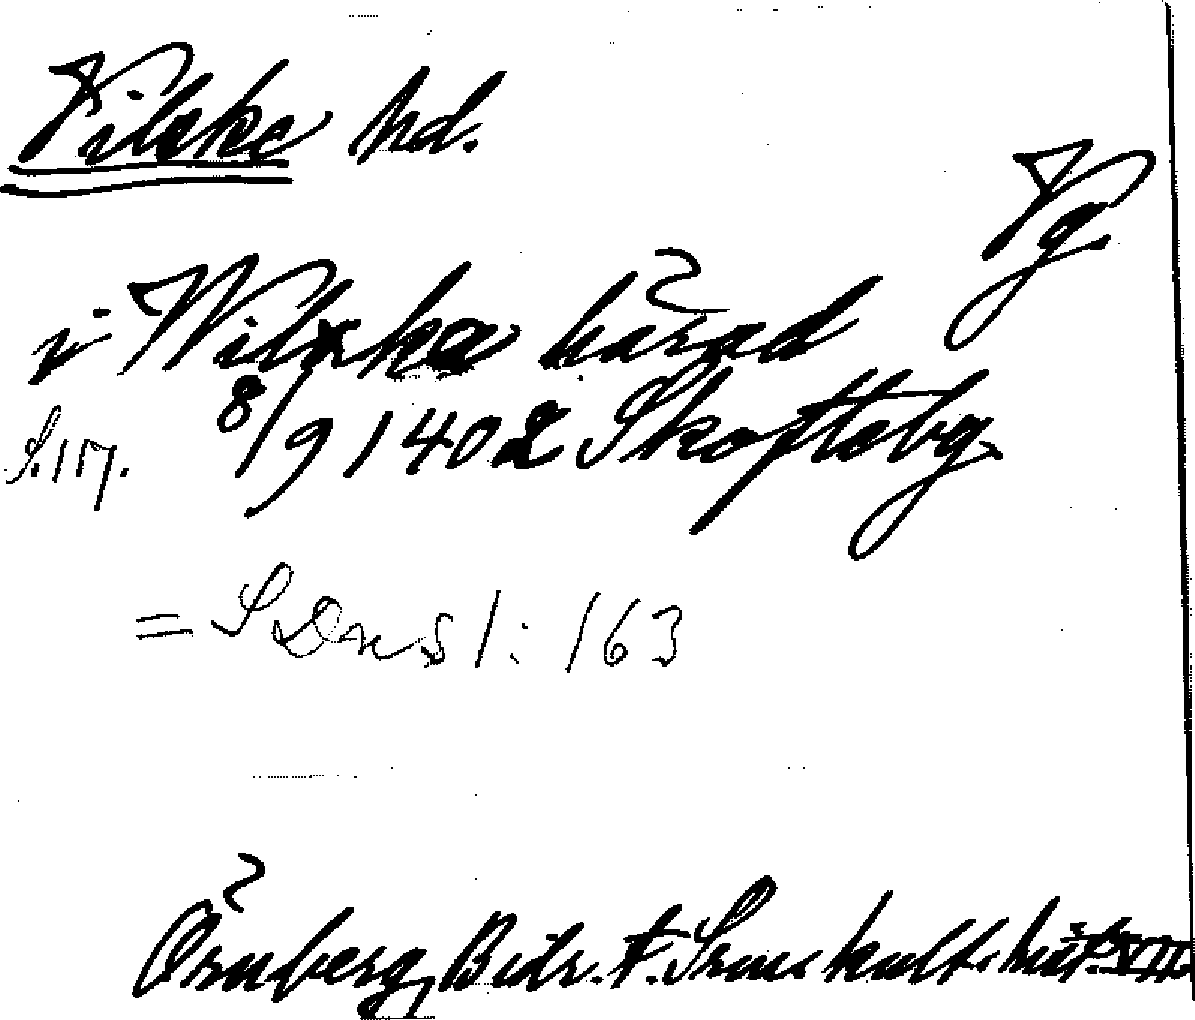 Vilske hd.
Vg.
i Wilxka härad
8/9 1402 Skofteby
S. 117.
= SDns 1: 163
Örnberg, Bidr. t. Sven. kult. hist. VII